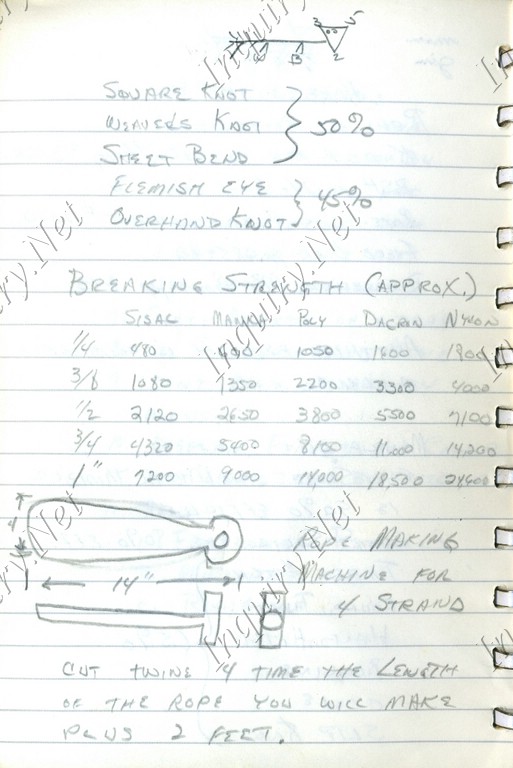 3
A
B
2
SQUARE KNOT
WEAVERS KNOT } 50%
SHEET BEND
FLEMISH EYE } 45%
OVERHAND KNOT
BREAKING STRENGTH (APPROX.)
SISAL MANILA POLY DACRON NYLON
1/4 480 1050 1600
3/8 1080 1350 2200 3300 4000
1/2 2120 2650 3800 5500 7100
3/4 4320 5400 8100 11,000 14,200
1" 7200 9000 14,000 18,500 24,600
4
14"
ROPE MAKING
MACHINE FOR
4 STRAND
CUT TWINE 14 TIME THE LENGTH
OF THE ROPE YOU WILL MAKE
PLUS 2 FEET.
Inquiry.Net